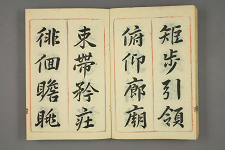 矩步引領
俯仰廊廟
束帶矜莊
徘徊瞻眺